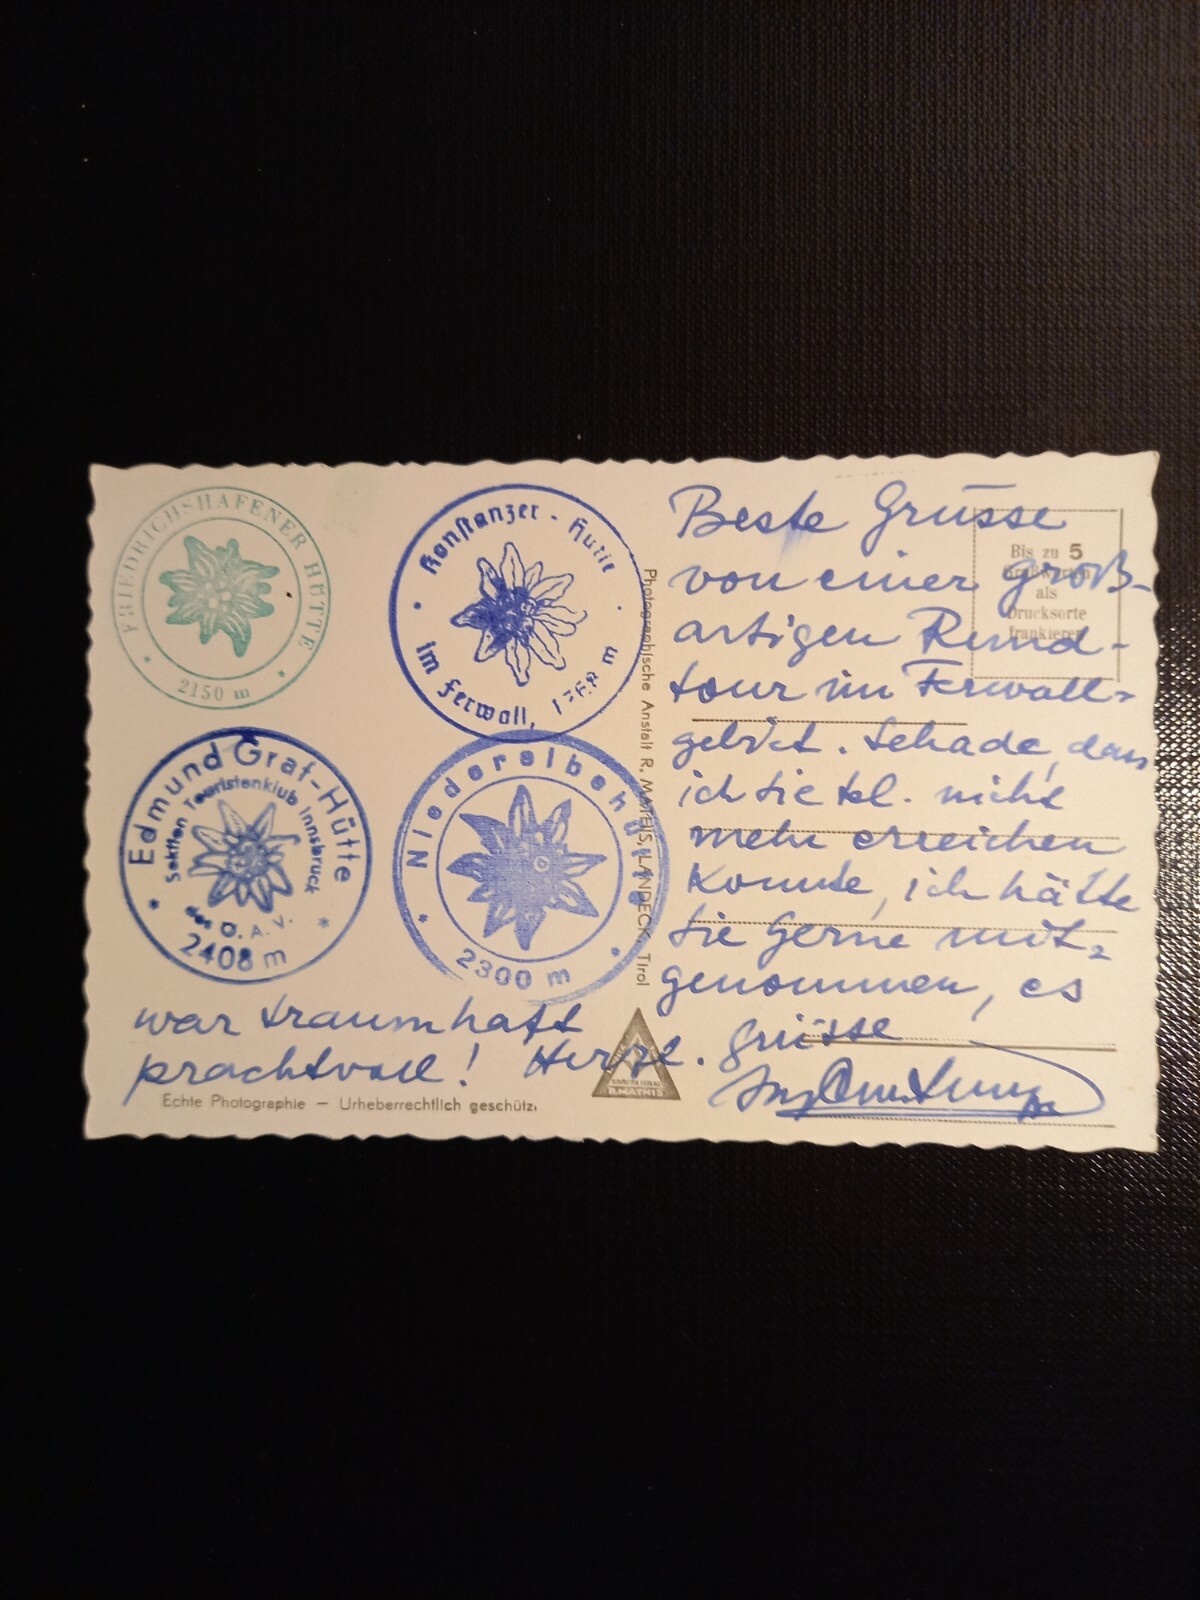 FRIEDRICHSHAFENER HÜTTE
2150 m
Konstanzer - Hütte
im Ferwall, 1768 m
Edmund Graf-Hütte
Sektion Touristenklub Innsbruck
des Ö. A. V.
2408 m
Niederelbehütte
2300 m
Photographische Anstalt R. MATHIS, LANDECK, Tirol
Bis zu 5
Grußworten
als
Drucksorte
frankieren
Beste Grüsse
von einer groß-
artigen Rund-
tour im Ferwall-
gebiet. Schade, dass
ich sie tel. nicht
mehr erreichen
konnte, ich hätte
sie gerne mit-
genommen, es
war traumhaft
prachtvoll! Herzl. grüsse
R. MATHIS
Echte Photographie — Urheberrechtlich geschützt